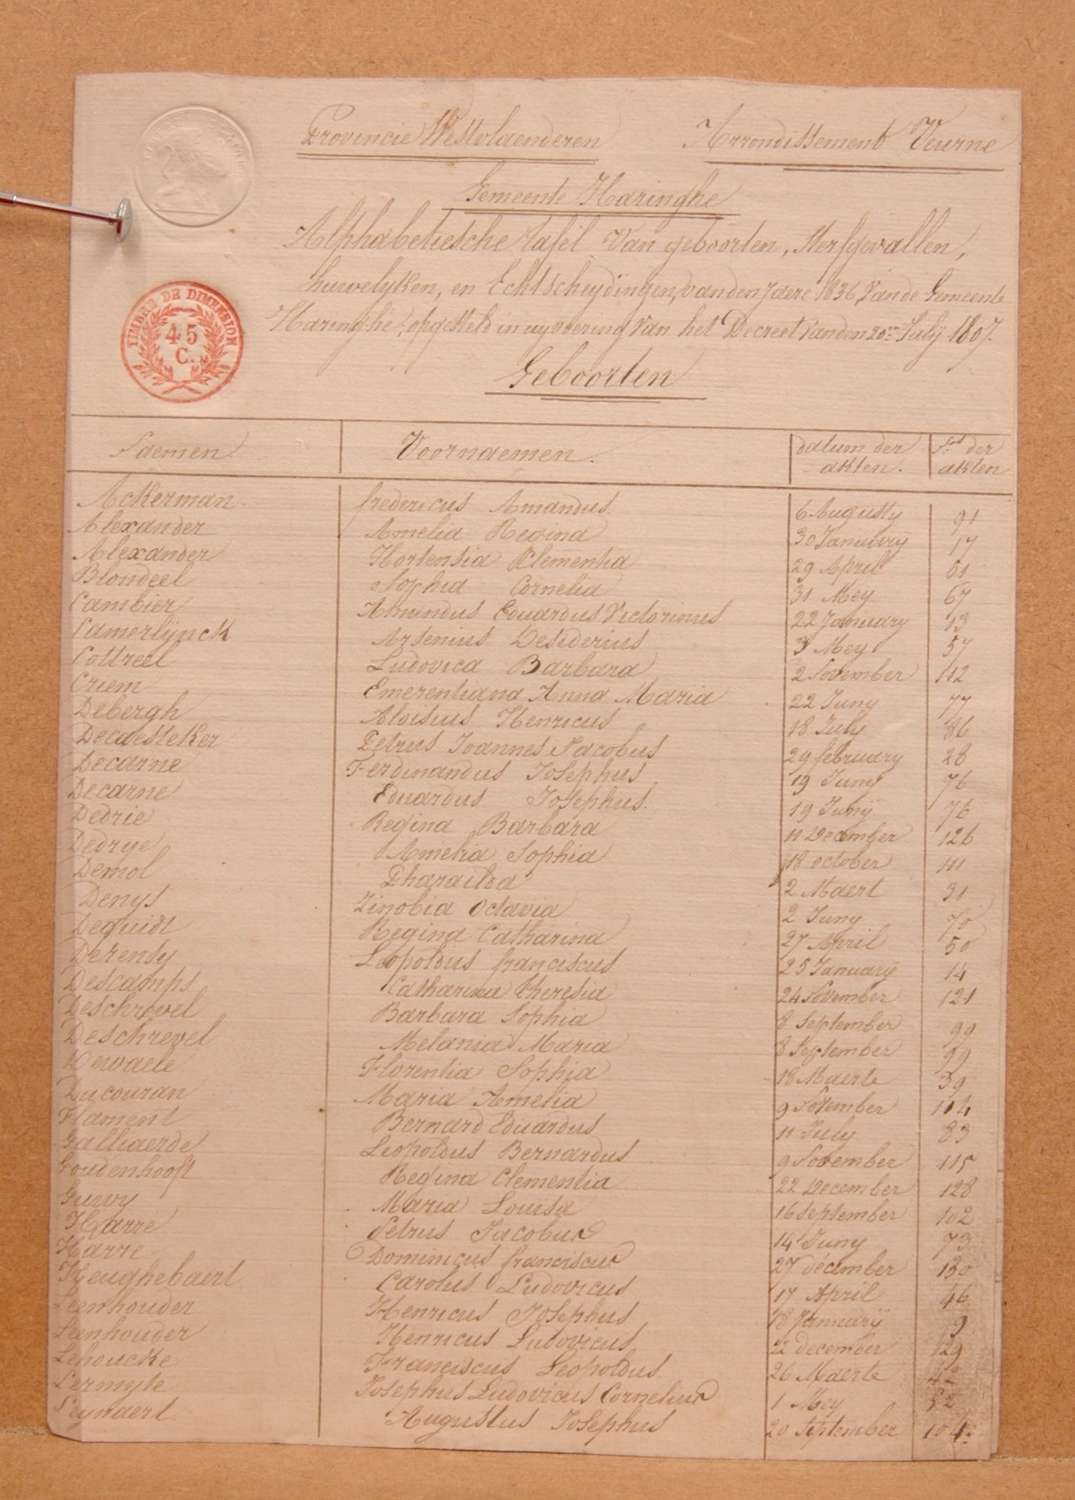 Provincie Westvlaenderen Arrondissement Veurne
Gemeente Haringhe
Alphabetietche tafel van geboorten, sterfgevallen,
huwelyken, en Echtscheydingen, van den jaere 1836 van de Gemeente
Haringhe, opgesteld in uyvoering van het Decreet van den 20en July 1807.
TIMBRE DE DIMENSION
45
C.
Geboorten
Naemen Voornaemen. datum der akten. No der akten
Ackerman fredericus Amandus 6 Augusty 91
Alexander Amelia Regina 30 January 17
Alexander Hortensia Clementia 29 April 51
Blondeel Sophia Cornelia 31 Mey 67
Cambier Amandus Eduardus Victorinus 22 January 13
Camerlynck Arsenius Desiderius 3 Mey 57
Cottreel Ludovica Barbara 2 November 112
Criem Emerentiana Anna Maria 22 Juny 77
Debergh Aloisius Henricus 18 July 86
Decaesteker Petrus Joannes Jacobus 29 february 28
Decarne Ferdinandus Josephus 19 Juny 76
Decarne Eduardus Josephus. 19 Juny 76
Dedrie Regina Barbara 11 December 126
Dedrye Amelia Sophia 18 october 111
Demol Pharailda 2 Maert 31
Denys Zinobia Octavia 2 Juny 70
Dequidt Regina Catharina 27 April 50
Derensy Leopoldus franciscus 25 January 14
Descamps Catharina theresia 24 November 121
Deschrevel Barbara Sophia 8 September 99
Deschrevel Melania Maria 8 September 99
Dewaele Florentia Sophia 18 Maerte 39
Ducouran Maria Amelia 9 November 114
Flament Bernard Eduardus 11 July 83
Galliaerde Leopoldus Bernardus 9 November 115
Goudenhooft Regina Clementia 22 December 128
Guwy Maria Louisa 16 September 102
Harre Petrus Jacobus 14 Juny 73
Harre Dominicus franciscus 27 december 130
Keughebaert Carolus Ludovicus 17 April 46
Leenhouder Henricus Josephus 18 January 9
Leenhouder Henricus Ludovicus 22 december 129
Lehoucke Franciscus Leopoldus 26 Maerte
Lermyte Josephus Ludovicus Cornelius 1 Mey 52
Leynaert Augustus Josephus 20 September 104